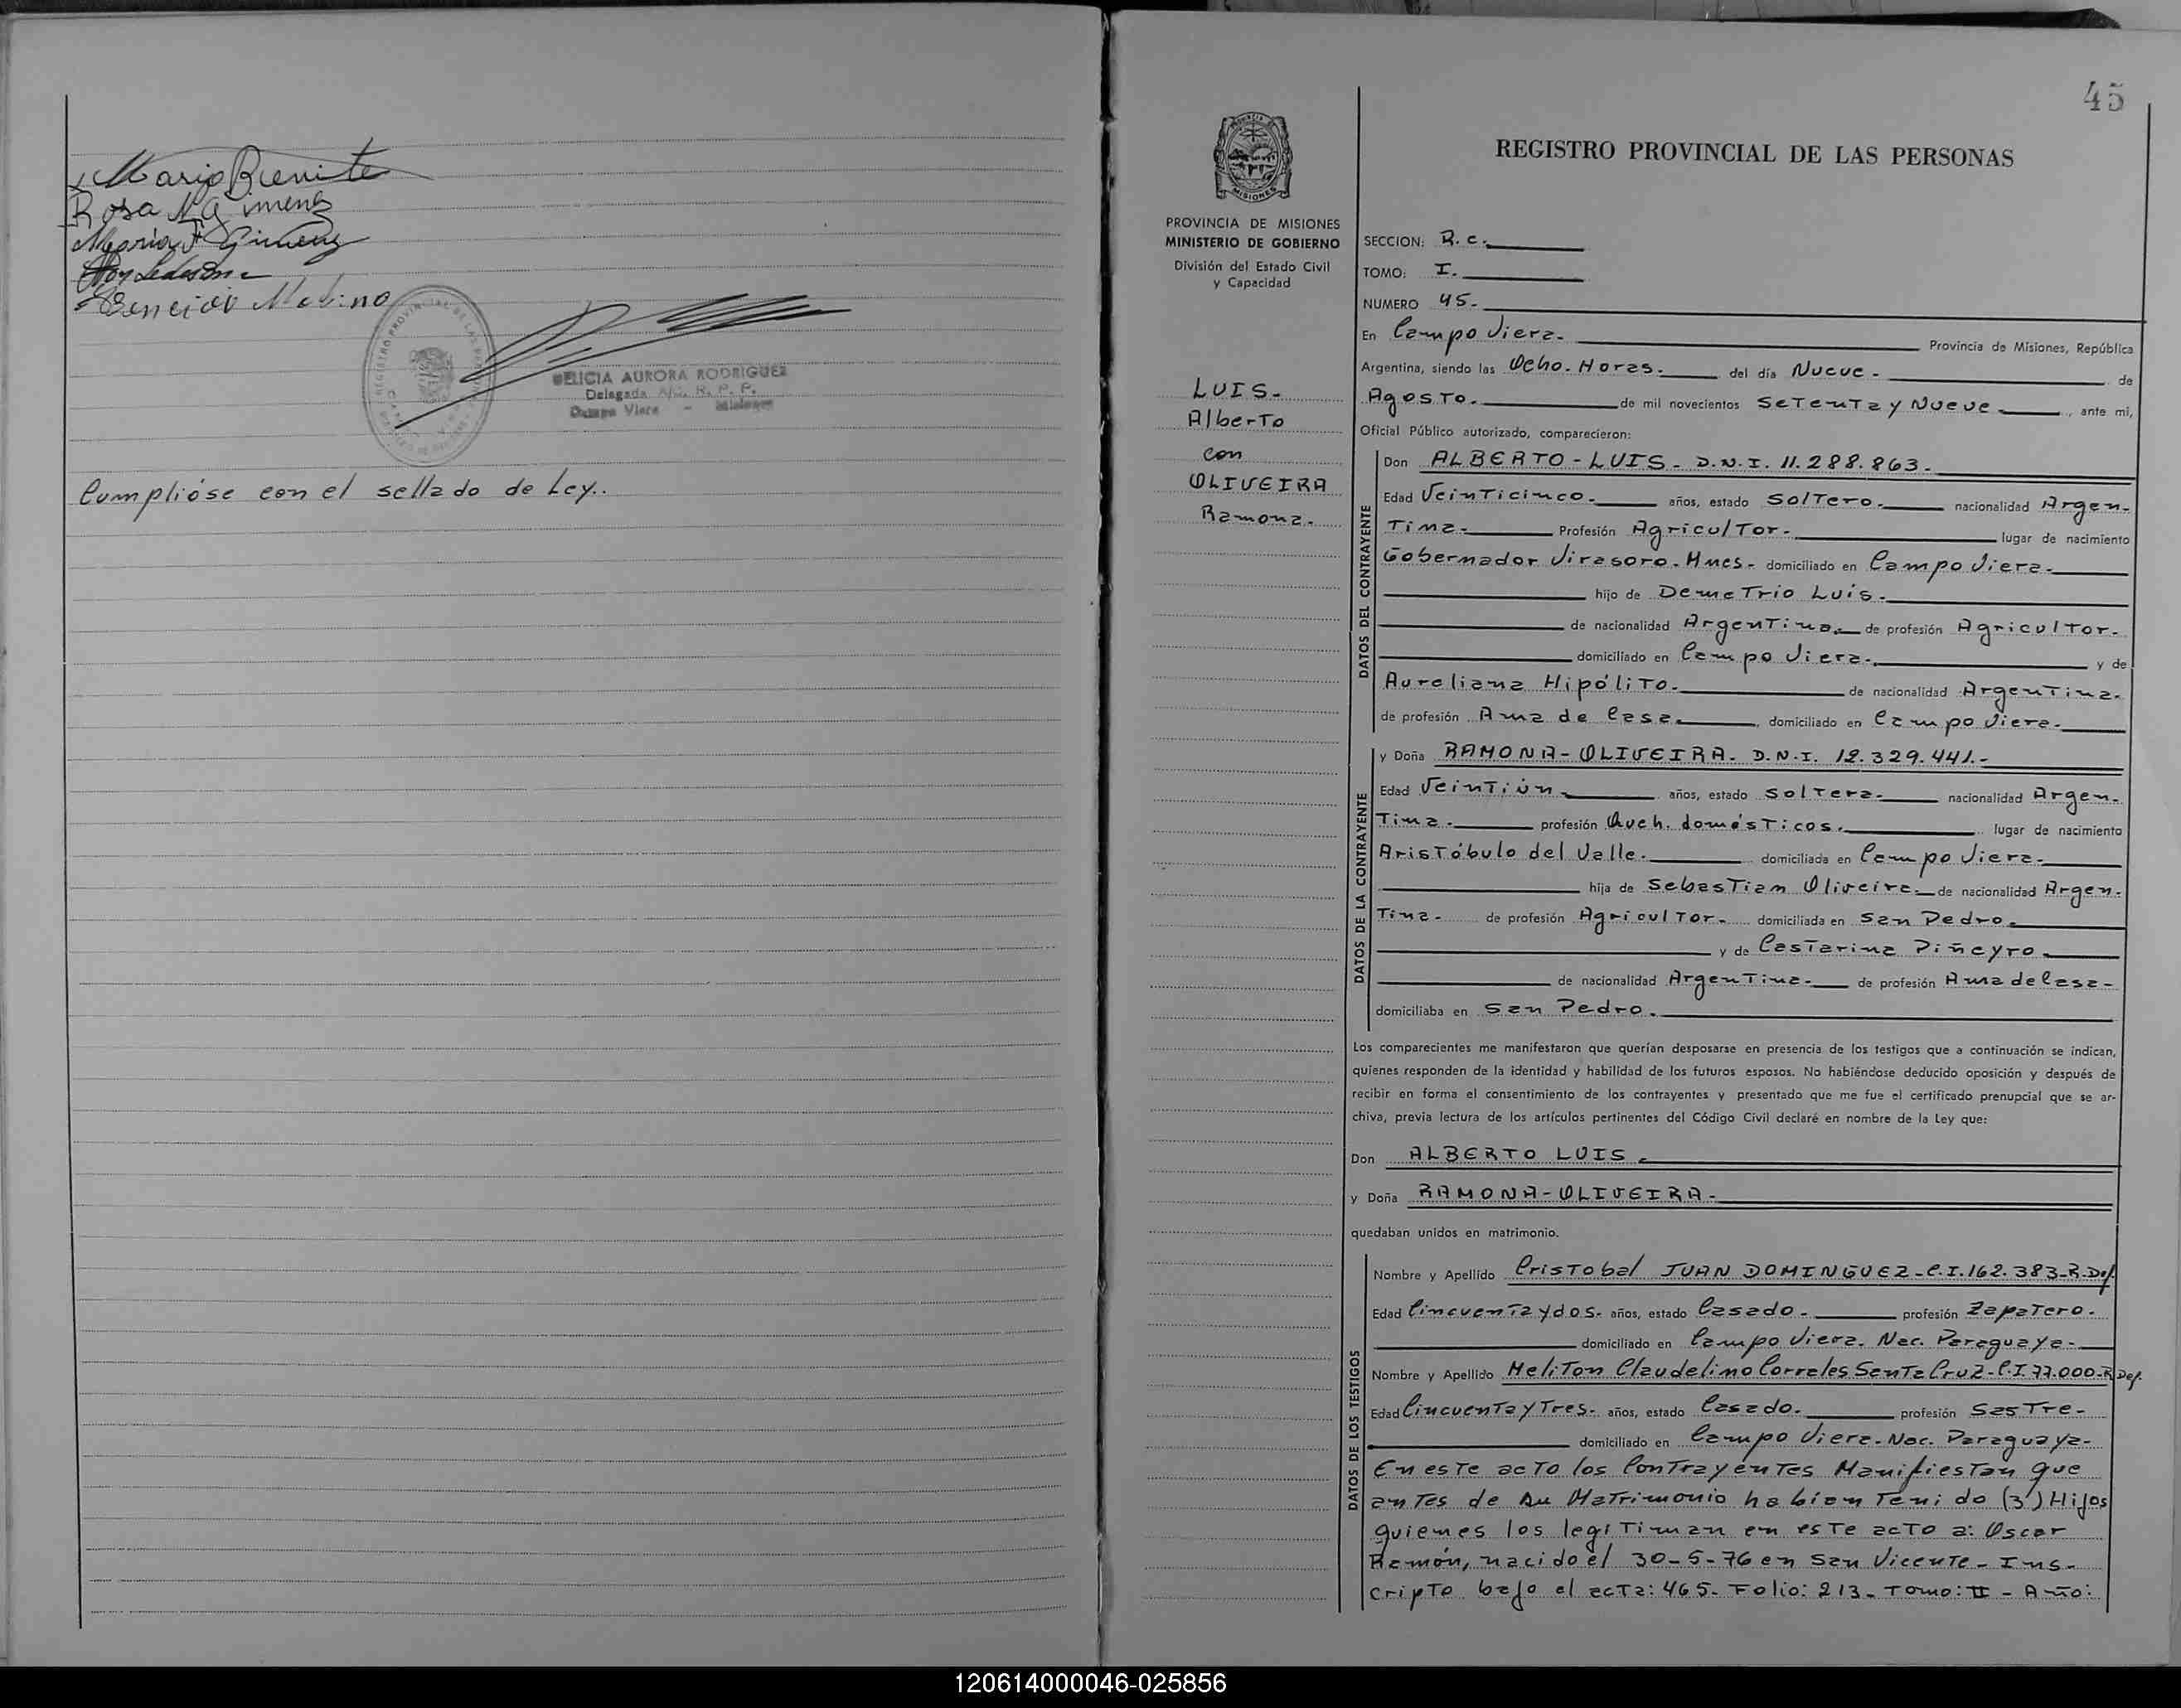 Mario Benite
Rosa N Gimenez
Maria F Gimenez
Molino
DELICIA AURORA RODRIGUEZ
Delegada R. P. P.
Campo Viera - Misiones
Cumplióse con el sellado de Ley..
45
REGISTRO PROVINCIAL DE LAS PERSONAS
MISIONES
PROVINCIA DE MISIONES
MINISTERIO DE GOBIERNO
División del Estado Civil
y Capacidad
LUIS.
Alberto
con
OLIVEIRA
Ramona.
SECCION: R.c.
TOMO: I.
NUMERO 45.
En Campo Viera. Provincia de Misiones, República
Argentina, siendo las Ocho. Horas. del día Nueve. de
Agosto. de mil novecientos Setenta y Nueve , ante mi,
Oficial Público autorizado, comparecieron:
DATOS DEL CONTRAYENTE
Don ALBERTO - LUIS - D.N.I. 11.288.863.
Edad Veinticinco. años, estado Soltero. nacionalidad Argen-
tina. Profesión Agricultor. lugar de nacimiento
Gobernador Virasoro. Mnes. domiciliado en Campo Viera.
hijo de Demetrio Luis.
de nacionalidad Argentina. de profesión Agricultor.
domiciliado en Campo Viera. y de
Aureliana Hipólito. de nacionalidad Argentina.
de profesión Ama de Casa , domiciliado en Campo Viera.
DATOS DE LA CONTRAYENTE
y Doña RAMONA - OLIVEIRA. D.N.I. 12.329.441.-
Edad Veintiún. años, estado Soltera. nacionalidad Argen-
tina. profesión Queh. domésticos. lugar de nacimiento
Aristóbulo del Valle. domiciliada en Campo Viera.
hija de Sebastian Oliveira. de nacionalidad Argen-
tina. de profesión Agricultor. domiciliada en San Pedro.
y de Castarina Piñeyro.
de nacionalidad Argentina. de profesión Ama de Casa-
domiciliaba en San Pedro.
Los comparecientes me manifestaron que querían desposarse en presencia de los testigos que a continuación se indican,
quienes responden de la identidad y habilidad de los futuros esposos. No habiéndose deducido oposición y después de
recibir en forma el consentimiento de los contrayentes y presentado que me fue el certificado prenupcial que se ar-
chiva, previa lectura de los artículos pertinentes del Código Civil declaré en nombre de la Ley que:
Don ALBERTO LUIS
y Doña RAMONA - OLIVEIRA.
quedaban unidos en matrimonio.
DATOS DE LOS TESTIGOS
Nombre y Apellido Cristobal JUAN DOMINGUEZ - C.I. 162.383-R.Def.
Edad Cincuenta y dos. años, estado Casado. profesión Zapatero.
domiciliado en Campo Viera. Nac. Paraguaya.
Nombre y Apellido Meliton Claudelino Corrales Santa Cruz - C.I. 77.000-R Def.
Edad Cincuenta y Tres. años, estado Casado. profesión Sastre-
domiciliado en Campo Viera. Nac. Paraguaya-
En este acto los Contrayentes Manifiestan que
antes de su Matrimonio habian tenido (3) Hijos
quienes los legitiman en este acto a: Oscar
Ramón, nacido el 30-5-76 en San Vicente - Ins-
cripto bajo el acta: 465. Folio: 213. Tomo: II - Año:
120614000046-025856